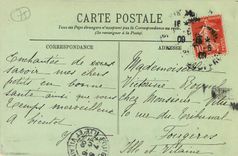 CARTE POSTALE
Tous les Pays étrangers n'acceptent pas la Correspondance au Recto
(Se renseigner à la Poste)
CORRESPONDANCE
ADRESSE
Enchantée de vous
savoir mes chers
petits en bonne
santé ainsi que vous
temps merveilleux
à bientôt
Mademoiselle
Victorine
chez Monsieur
10 rue du Tribunal
Fougères
Ille et Vilaine